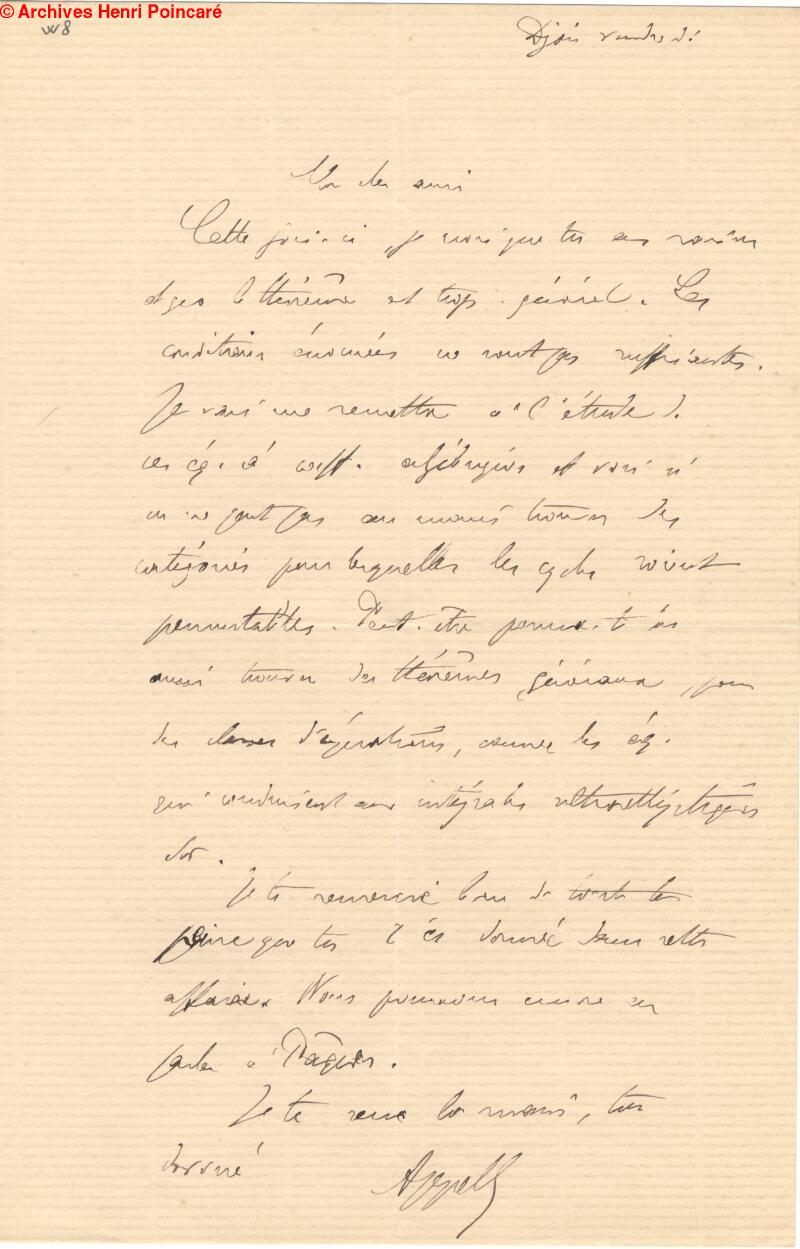 © Archives Henri Poincaré
W8
Dijon vendredi
Mon cher ami
Cette fois-ci, je crois que tu as raison
et que le théorème est trop général. Les
conditions énoncées ne sont pas suffisantes.
Je vais me remettre à l'étude de
ces éq. à coeff. algébriques et voir si
on ne peut pas au moins trouver des
catégories pour lesquelles les cycles soient
permutables. Peut-être pourra-t-on
aussi trouver des théorèmes généraux, pour
des classes d'équations, comme les éq.
qui conduisent aux intégrales ultraelliptiques
Je te remercie bien de toute la
peine que tu t'es donné dans cette
affaire. Nous pourrons encore en
parler à Pâques.
Je te serre la main, ton
dévoué
Appell